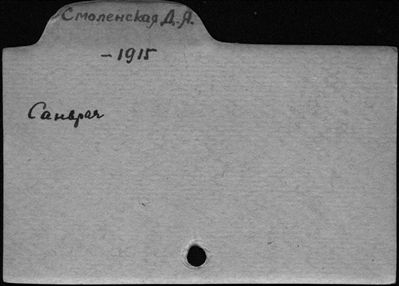 Смоленская Д.Я.
-1915
Санврач